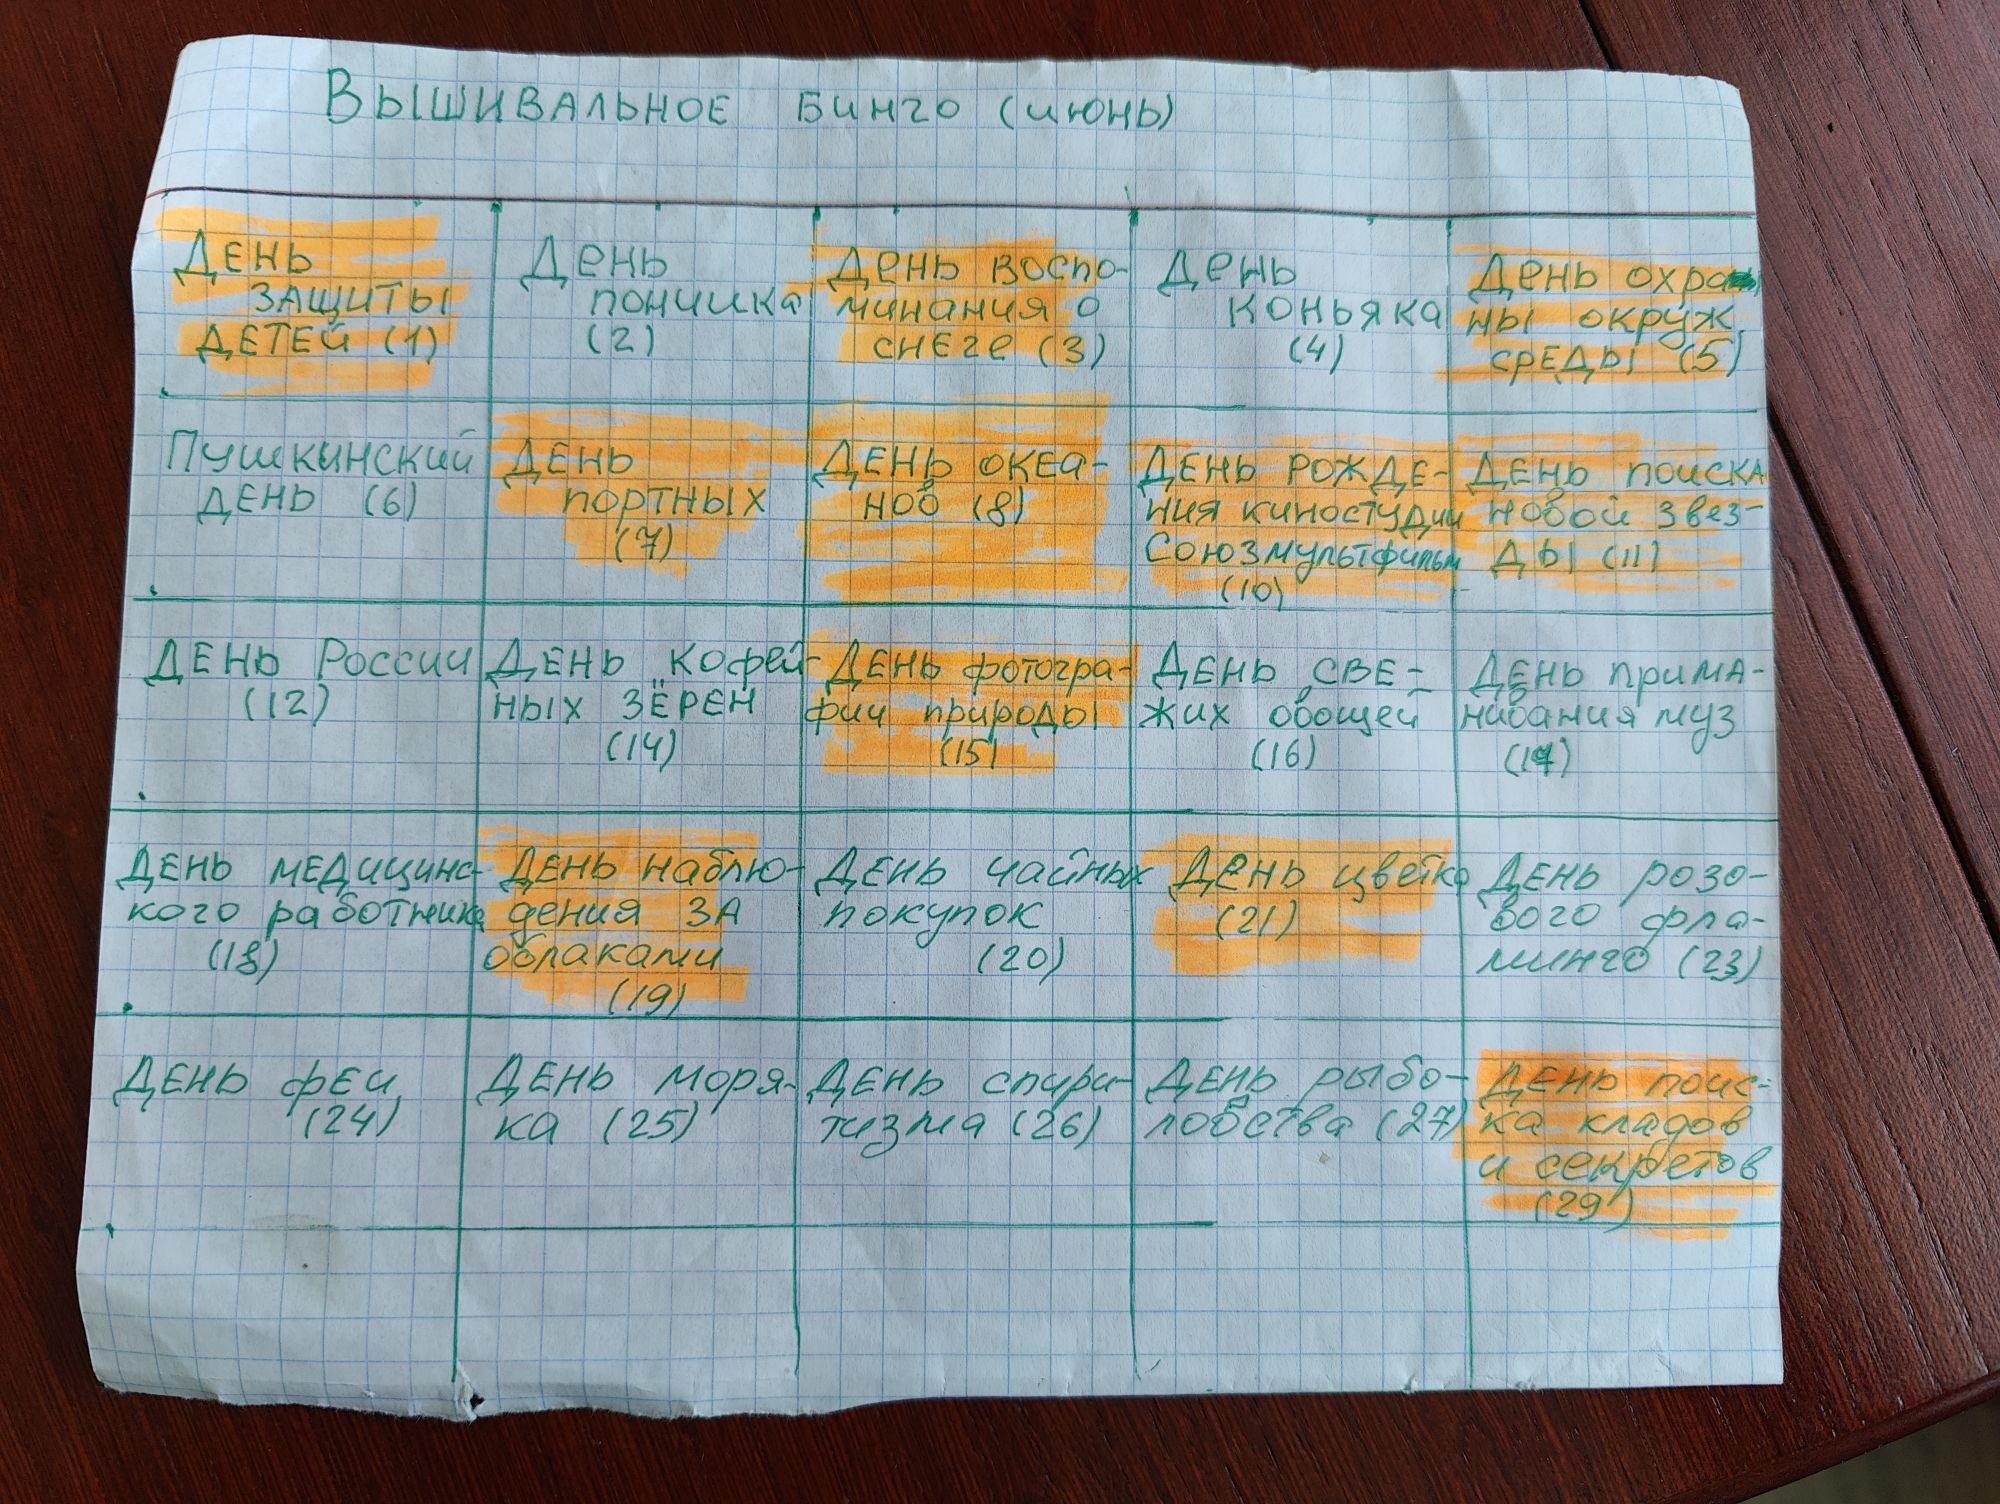 ВЫШИВАЛЬНОЕ БИНГО (ИЮНЬ)
ДЕНЬ
ЗАЩИТЫ
ДЕТЕЙ (1)
День
пончика
(2)
День воспо-
минания о
снеге (3)
День
коньяка
(4)
День охра
ны окруж.
среды (5)
Пушкинский
день (6)
День
портных
(7)
День океа-
нов (8)
День рожде-
ния киностудии
Союзмультфильм
(10)
День поиска
новой звез-
ды (11)
День России
(12)
День кофей-
ных зёрен
(14)
День фотогра-
фии природы
(15)
День све-
жих овощей
(16)
День прима-
нивания муз
(17)
День медицинс-
кого работника
(18)
День наблю-
дения за
облаками
(19)
День чайных
покупок
(20)
День цветка
(21)
День розо-
вого фла-
минго (23)
День феи
(24)
День моря-
ка (25)
День спири-
тизма (26)
День рыбо-
ловства (27)
День поис-
ка кладов
и секретов
(29)